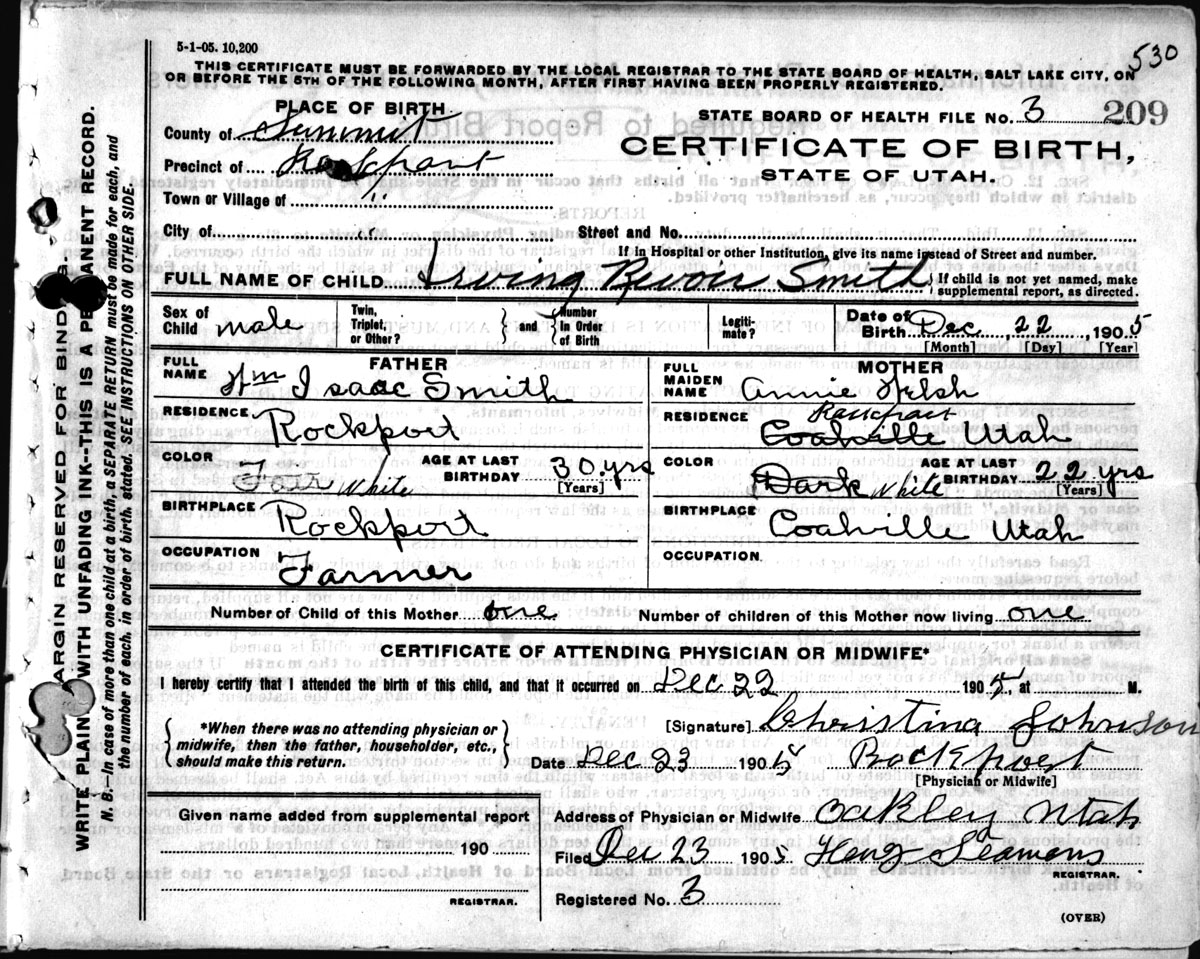 5-1-05. 10,200
530
THIS CERTIFICATE MUST BE FORWARDED BY THE LOCAL REGISTRAR TO THE STATE BOARD OF HEALTH, SALT LAKE CITY, ON
OR BEFORE THE 5TH OF THE FOLLOWING MONTH, AFTER FIRST HAVING BEEN PROPERLY REGISTERED.
PLACE OF BIRTH
STATE BOARD OF HEALTH FILE No. 3 209
County of Summit
CERTIFICATE OF BIRTH,
Precinct of Rockport
STATE OF UTAH.
Town or Village of "
City of " Street and No.
If in Hospital or other Institution, give its name instead of Street and number.
FULL NAME OF CHILD Irving Smith } If child is not yet named, make
supplemental report, as directed.
Sex of Child male Twin, Triplet, or Other? } and { Number in Order of Birth Legiti- mate? Date of Birth Dec 22 1905
[Month] [Day] [Year]
FATHER MOTHER
FULL NAME Wm Isaac Smith FULL MAIDEN NAME Annie Welsh
RESIDENCE Rockport RESIDENCE Rockport Coalville Utah
COLOR Fair White AGE AT LAST BIRTHDAY 30 yrs [Years] COLOR Dark White AGE AT LAST BIRTHDAY 22 yrs [Years]
BIRTHPLACE Rockport BIRTHPLACE Coalville Utah
OCCUPATION Farmer OCCUPATION
Number of Child of this Mother one Number of children of this Mother now living one
CERTIFICATE OF ATTENDING PHYSICIAN OR MIDWIFE*
I hereby certify that I attended the birth of this child, and that it occurred on Dec 22 1905, at M.
{ *When there was no attending physician or midwife, then the father, householder, etc., should make this return. }
[Signature] Christina Johnson
Date Dec 23 1905 Rockport
[Physician or Midwife]
Given name added from supplemental report
190
REGISTRAR.
Address of Physician or Midwife Oakley Utah
Filed Dec 23 1905 Seamons
REGISTRAR.
Registered No. 3
(OVER)
MARGIN RESERVED FOR BINDING.
WRITE PLAINLY WITH UNFADING INK--THIS IS A PERMANENT RECORD.
N. B.—In case of more than one child at a birth, a SEPARATE RETURN must be made for each, and
the number of each, in order of birth, stated. SEE INSTRUCTIONS ON OTHER SIDE.